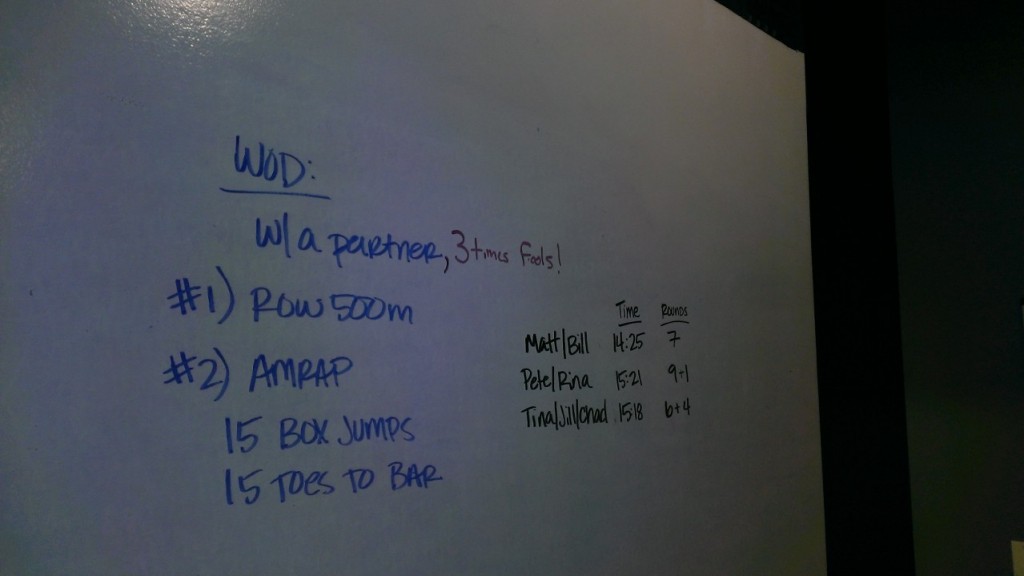 WOD:
W/ a partner, 3 times fools!
#1) Row 500m
#2) AMRAP
15 Box Jumps
15 Toes to Bar
Time Rounds
Matt/Bill 14:25 7
Pete/Rina 15:21 9+1
Tina/Jill/Chad 15:18 6+4